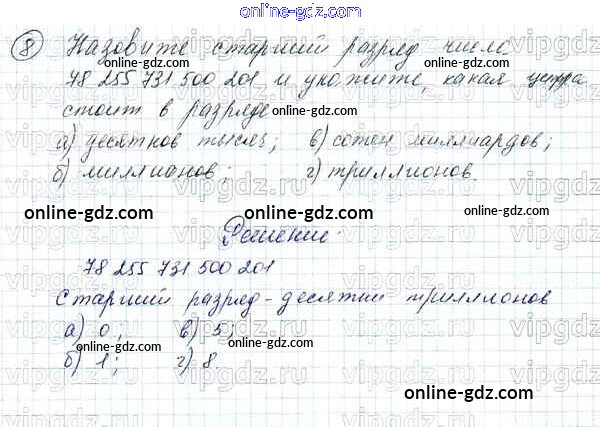 online-gdz.com
8 Назовите старший разряд числа
78 255 731 500 201 и укажите, какая цифра
стоит в разряде online-gdz.com
а) десятков тысяч; в) сотен миллиардов;
б) миллионов; г) триллионов.
online-gdz.com online-gdz.com online-gdz.com
Решение:
78 255 731 500 201
Старший разряд - десятки триллионов
а) 0; в) 5;
online-gdz.com online-gdz.com
б) 1; г) 8.
online-gdz.com online-gdz.com
vipgdz.ru vipgdz.ru vipgdz.ru